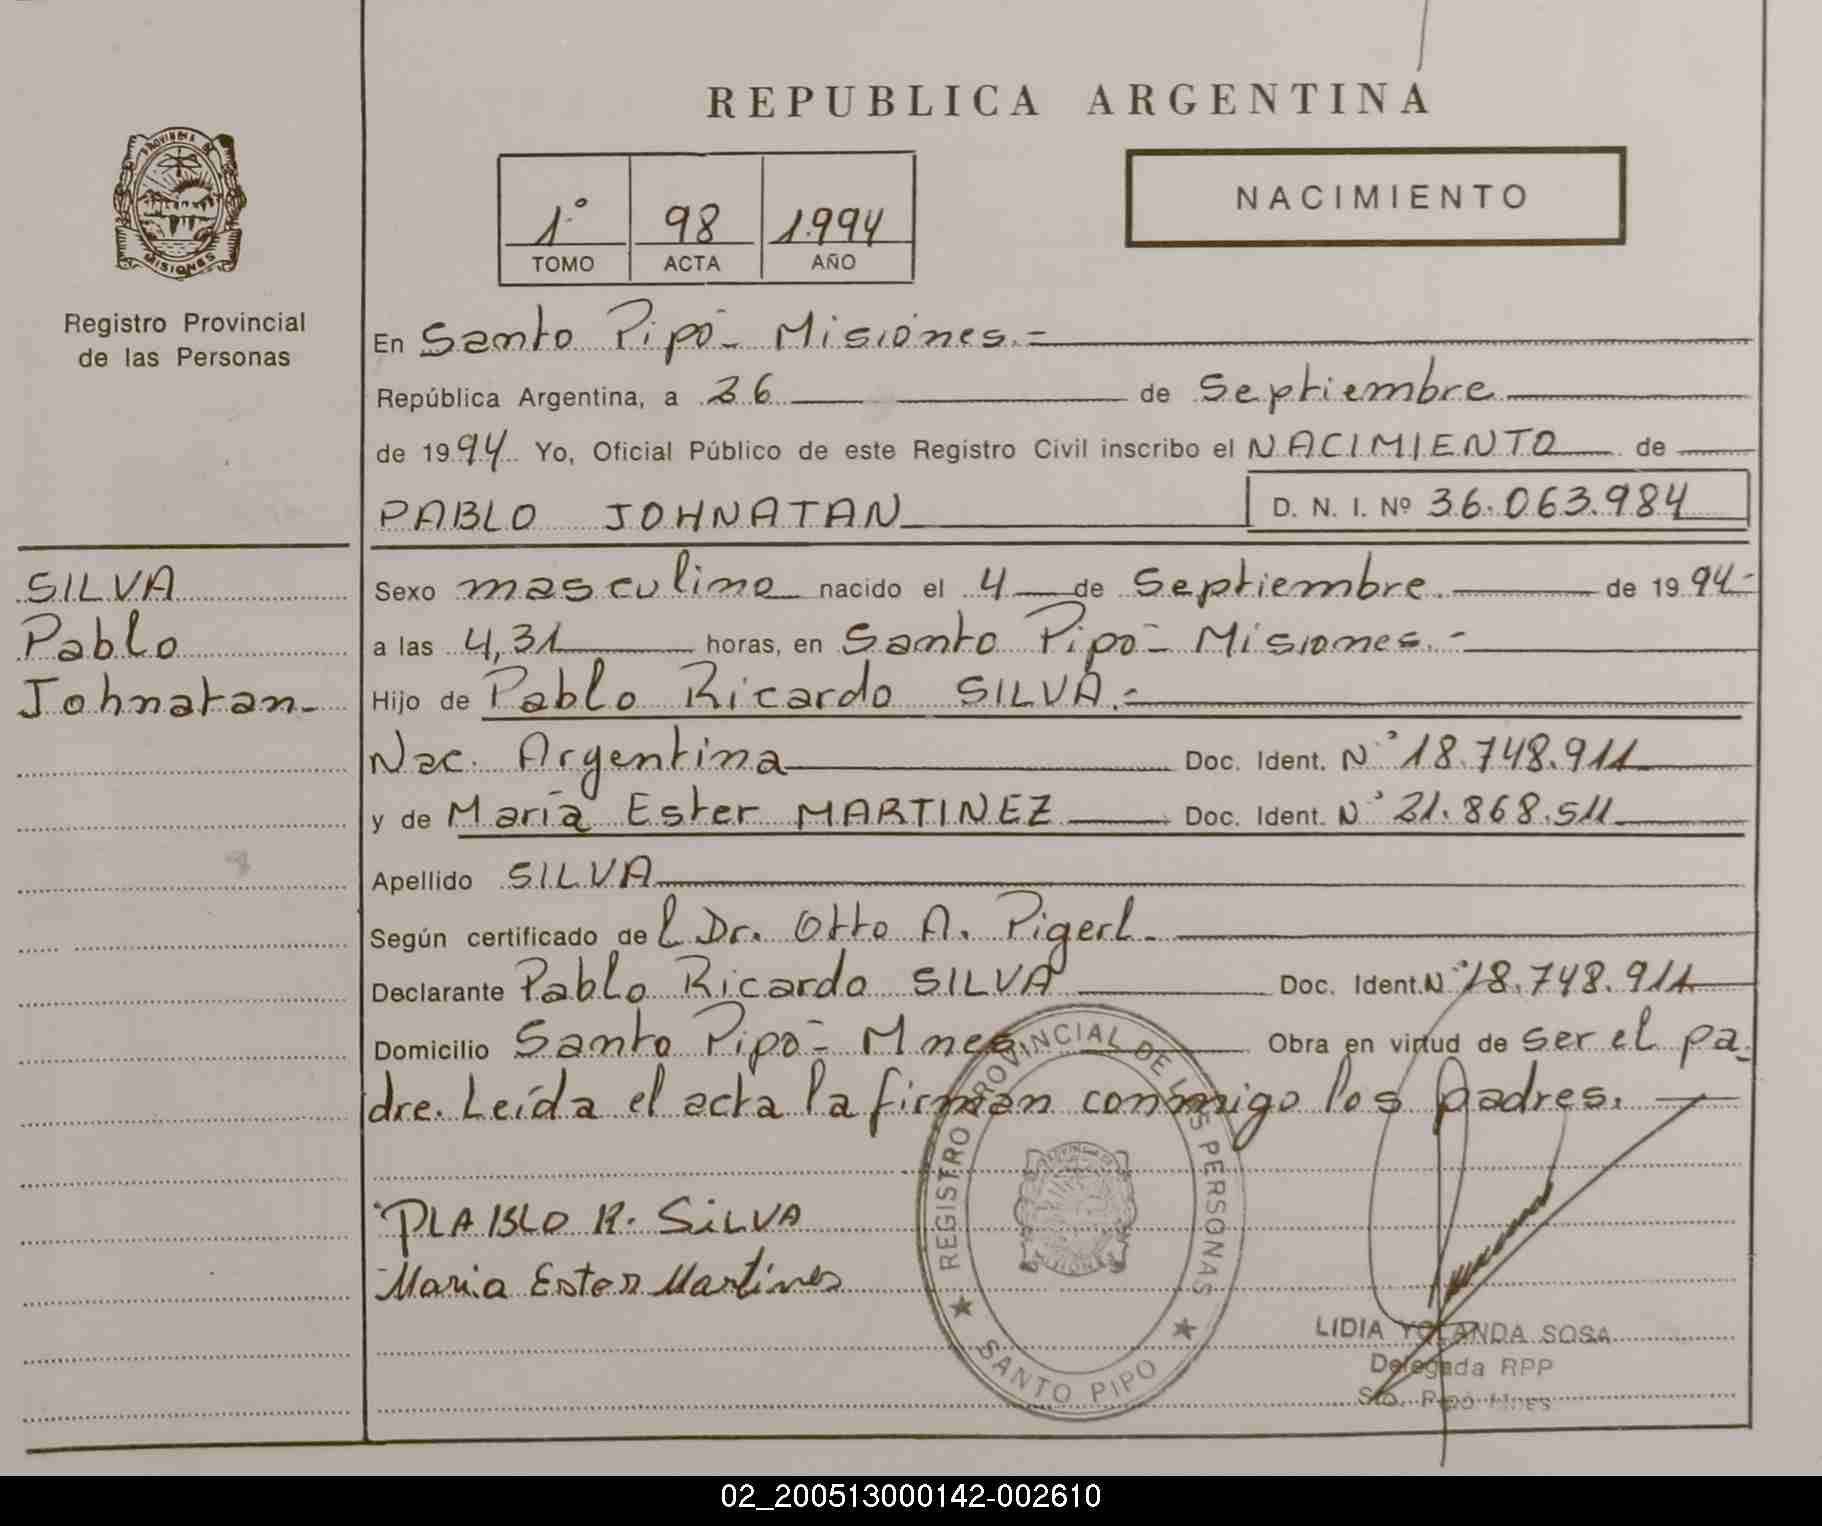 REPUBLICA ARGENTINA
PROVINCIA DE
MISIONES
Registro Provincial
de las Personas
1º 98 1.994
TOMO ACTA AÑO
NACIMIENTO
En Santo Pipó - Misiones.=
República Argentina, a 26 de Septiembre
de 1994 Yo, Oficial Público de este Registro Civil inscribo el NACIMIENTO de
PABLO JOHNATAN D. N. I. Nº 36.063.984
SILVA
Pablo
Johnatan-
Sexo masculino nacido el 4 de Septiembre. de 1994-
a las 4,31 horas, en Santo Pipó - Misiones.-
Hijo de Pablo Ricardo SILVA.-
Nac. Argentina Doc. Ident. Nº 18.748.911
y de María Ester MARTINEZ Doc. Ident. Nº 21.868.511
Apellido SILVA
Según certificado del Dr. Otto A. Pigerl.
Declarante Pablo Ricardo SILVA Doc. Ident. Nº 18.748.911
Domicilio Santo Pipó - Mnes. Obra en virtud de ser el pa-
dre. Leída el acta la firman conmigo los padres.
PLABLO R. SiLVA
Maria Ester Martines
REGISTRO PROVINCIAL DE LAS PERSONAS
SANTO PIPO
LIDIA YOLANDA SOSA
Delegada RPP
Sto. Pipó Mnes
02_200513000142-002610